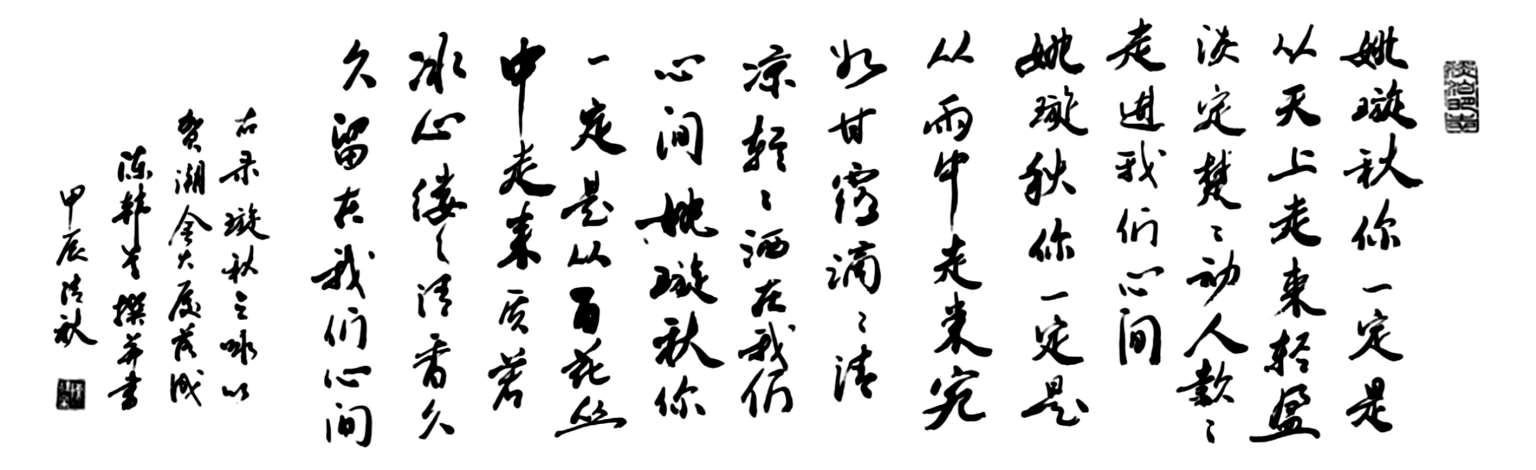 姚璇秋你一定是
从天上走来轻盈
淡定楚楚动人款款
走进我们心间
姚璇秋你一定是
从雨中走来宛
如甘露滴滴清
凉轻轻洒在我们
心间姚璇秋你
一定是从百花丛
中走来质若
冰心缕缕清香久
久留在我们心间
右录璇秋之咏以
贺潮金大厦落成
陈韩 撰并书
甲辰清秋